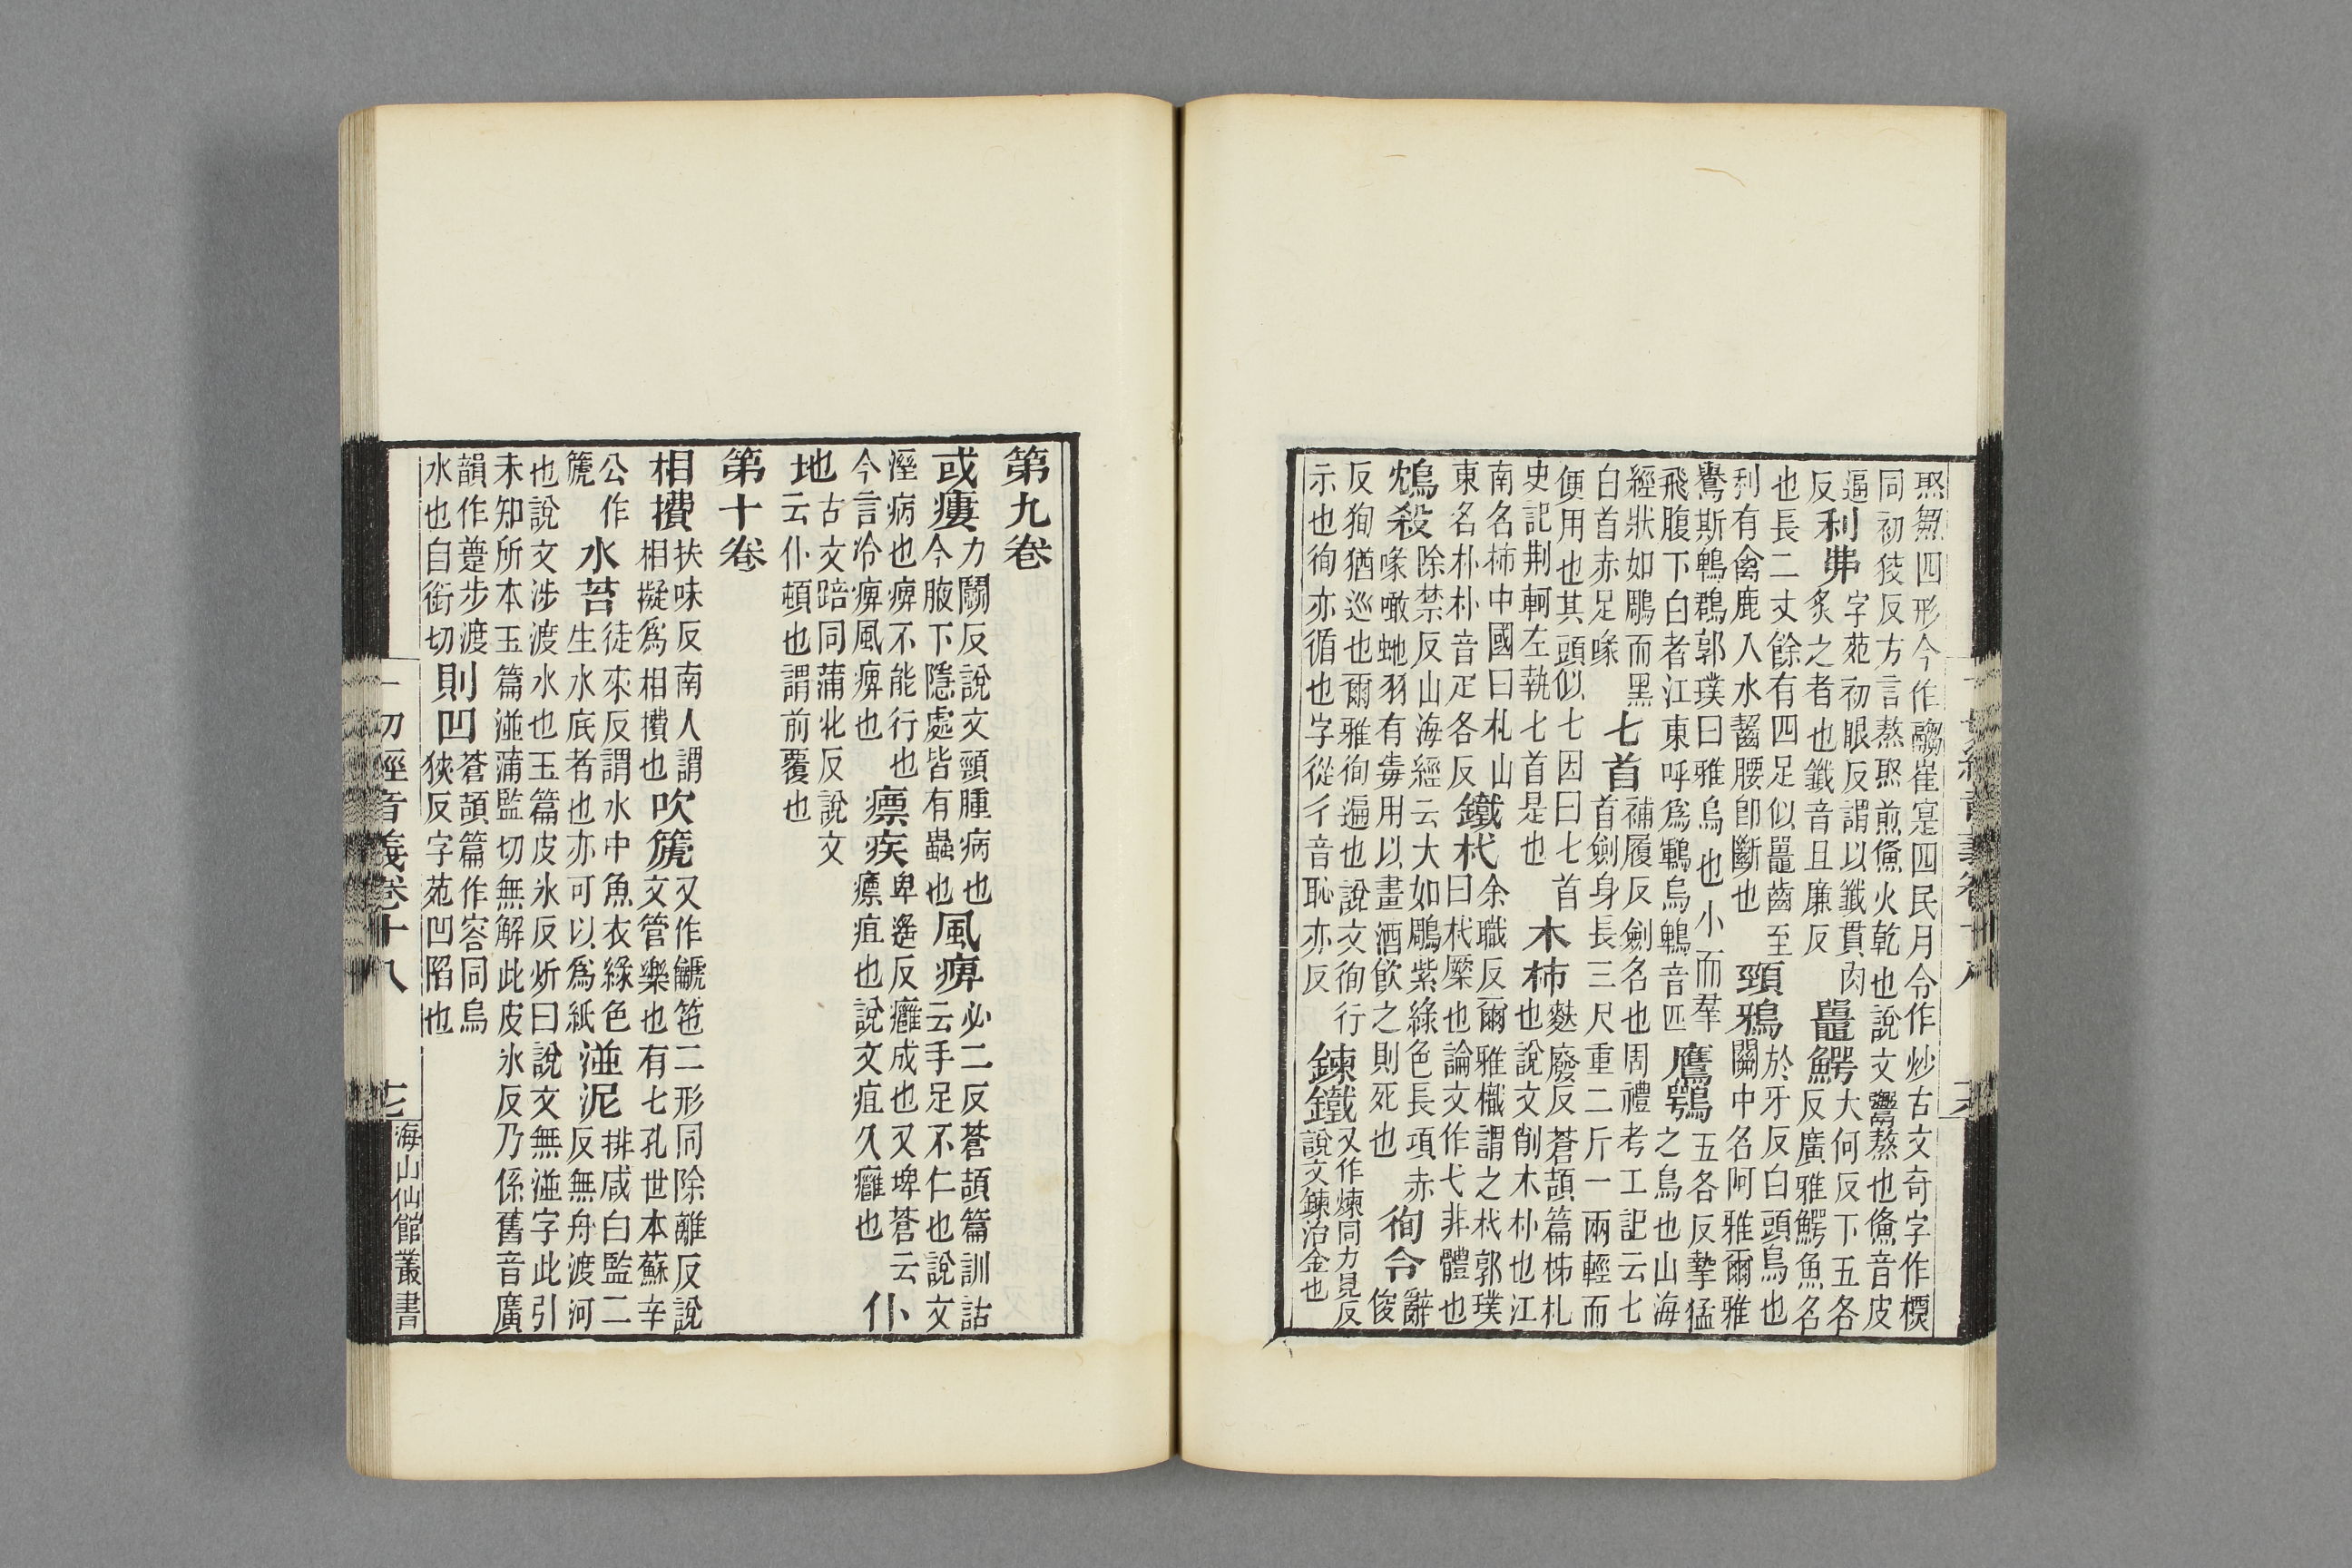 㷅𤈷四形今作䰞崔寔四民月令作炒古文奇字作㮽同初狡反方言熬㷅煎㷶火乾也說文鬻熬也㷶音皮
逼反利弗字苑初眼反謂以籤貫肉炙之者也籤音且廉反鼉鰐大何反下五各反廣雅鰐魚名
也長二丈餘有四足似鼉齒至利有禽鹿入水齧腰卽斷也頸鴉於牙反白頭烏也關中名阿雅爾雅
鸒斯鵯鶋郭璞曰雅烏也小而羣飛腹下白者江東呼爲鵯烏鵯音匹鷹鶚五各反摯猛之鳥也山海
經狀如鵰而黑白首赤足喙七首補履反劍名也周禮考工記云七首劍身長三尺重二斤一兩輕而
便用也其頭似七因曰七首史記荆軻左執七首是也木柿麩廢反蒼頡篇柹札也說文削木朴也江
南名柿中國曰札山東名朴朴音疋各反鐵杙余職反爾雅樴謂之杙郭璞曰杙橜也論文作弋非體也
鴆殺除禁反山海經云大如鵰紫綠色長項赤喙噉虵羽有毒用以畫酒飲之則死也徇令辭俊
反狥猶巡也爾雅徇遍也說文徇行示也徇亦循也字從彳音恥亦反鍊鐵又作煉同力見反說文鍊治金也
第九卷
或瘻力鬭反說文頸腫病也今腋下隱處皆有蟲也風痹必二反蒼頡篇訓詁云手足不仁也說文
溼病也痹不能行也今言冷痹風痹也瘭疾卑遙反癰成也又埤蒼云瘭疽也說文疽久癰也仆
地古文踣同蒲北反說文云仆頓也謂前覆也
第十卷
相擯扶味反南人謂相擬爲相擯也吹箎又作䶵竾二形同除離反說文管樂也有七孔世本蘇辛
公作箎水苔徒來反謂水中魚衣綠色生水底者也亦可以爲紙湴泥排咸白監二反無舟渡河
也說文涉渡水也玉篇皮氷反炘曰說文無湴字此引未知所本玉篇湴蒲監切無解此皮氷反乃係舊音廣
韻作𨂝步渡水也自銜切則凹蒼頡篇作容同烏狹反字苑凹陷也
一切經音義卷十八
十七
海山仙館叢書